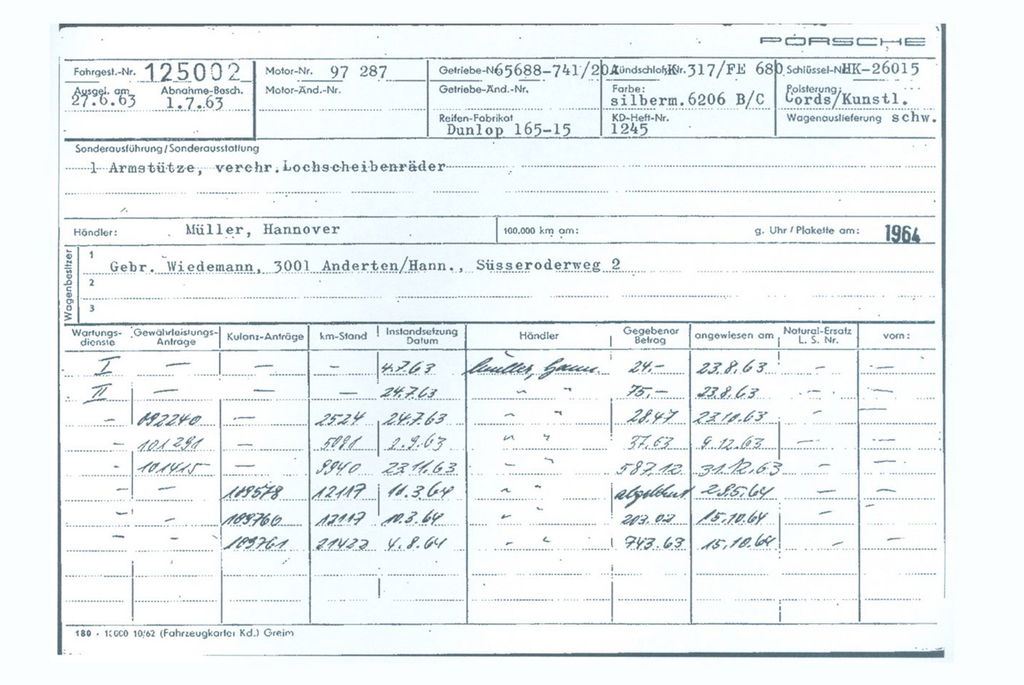 PORSCHE
Fahrgest.-Nr. 125002 Motor-Nr. 97 287 Getriebe-N65688-741/20A Zündschloß-Nr. K.317/FE 680 Schlüssel-Nr. HK-26015
Ausgel. am 27.6.63 Abnahme-Besch. 1.7.63 Motor-Änd.-Nr. Getriebe-Änd.-Nr. Farbe: silberm.6206 B/C Polsterung: Cords/Kunstl.
Reifen-Fabrikat Dunlop 165-15 KD-Heft-Nr. 1245 Wagenauslieferung schw.
Sonderausführung/Sonderausstattung
1 Armstütze, verchr.Lochscheibenräder
Händler: Müller, Hannover 100.000 km am: g. Uhr/Plakette am: 1964
Wagenbesitzer
1 Gebr. Wiedemann, 3001 Anderten/Hann., Süsseroderweg 2
2
3
Wartungs-dienste Gewährleistungs-Antrage Kulanz-Anträge km-Stand Instandsetzung Datum Händler Gegebener Betrag angewiesen am Natural-Ersatz L. S. Nr. vom:
I — — — 4.7.63 Müller, Hann. 24.- 23.8.63 — —
II — — — 24.7.63 " " 75,- 23.8.63 — —
— 092240 — 2524 24.7.63 " " 28.47 23.10.63 — —
— 101291 — 5091 2.9.63 " " 37.63 9.12.63 — —
— 101415 — 9940 23.11.63 " " 587.12 31.12.63 — —
— — 109578 12117 10.3.64 " " abgelehnt 29.5.64 — —
— — 109760 12117 10.3.64 " " 203.02 15.10.64 — —
— — 109761 21422 4.8.64 " " 743.63 15.10.64 — —
180 - 10/62 (Fahrzeugkartei Kd.) Greim